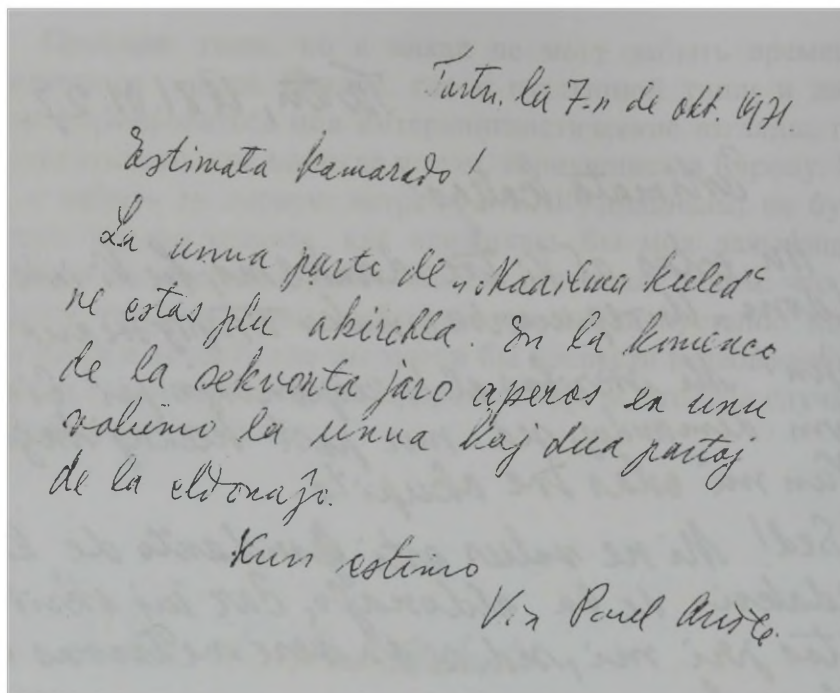 Tartu, la 7-n de okt. 1971.
Estimata kamarado!
La unua parto de „Maailma keeled“
ne estas plu akirebla. En la komenco
de la sekvonta jaro aperos en unu
volumo la unua kaj dua partoj
de la eldonaĵo.
Kun estimo
Via Paul Ariste.